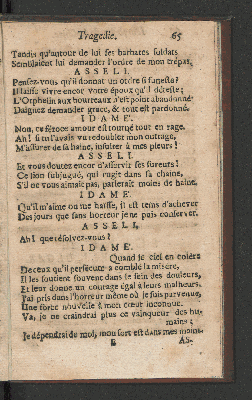 Tragedie. 65
Tandis qu'autour de lui ses barbares soldats
Semblaient lui demander l'ordre de mon trépas.
ASSELI.
Pensez-vous qu'il donnât un ordre si funeste?
Il laisse vivre encor votre époux qu'il déteste;
L'Orphelin aux bourreaux n'est point abandonné.
Daignez demander grace, & tout est pardonné.
IDAMÉ.
Non, ce féroce amour est tourné tout en rage.
Ah! si tu l'avais vu redoubler mon outrage,
M'assurer de sa haine, insulter à mes pleurs!
ASSELI.
Et vous doutez encor d'asservir ses fureurs?
Ce lion subjugué, qui rugit dans sa chaine,
S'il ne vous aimait pas, parlerait moins de haine.
IDAMÉ.
Qu'il m'aime ou me haïsse, il est tems d'achever
Des jours que sans horreur je ne puis conserver.
ASSELI.
Ah! que résolvez-vous?
IDAMÉ.
Quand le ciel en colère
De ceux qu'il persécute a comblé la misère,
Il les soutient souvent dans le sein des douleurs,
Et leur donne un courage égal à leurs malheurs.
J'ai pris dans l'horreur même où je suis parvenue,
Une force nouvelle à mon cœur inconnue.
Va, je ne craindrai plus ce vainqueur des hu-
mains;
Je dépendrai de moi, mon sort est dans mes mains.
E As-